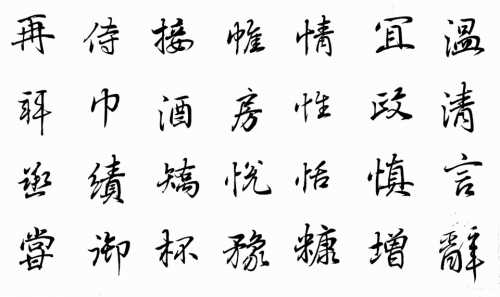 温清言辭
宜政慎增
情性恬糠
帷房悦豫
接酒矯杯
侍巾績御
再拜烝嘗